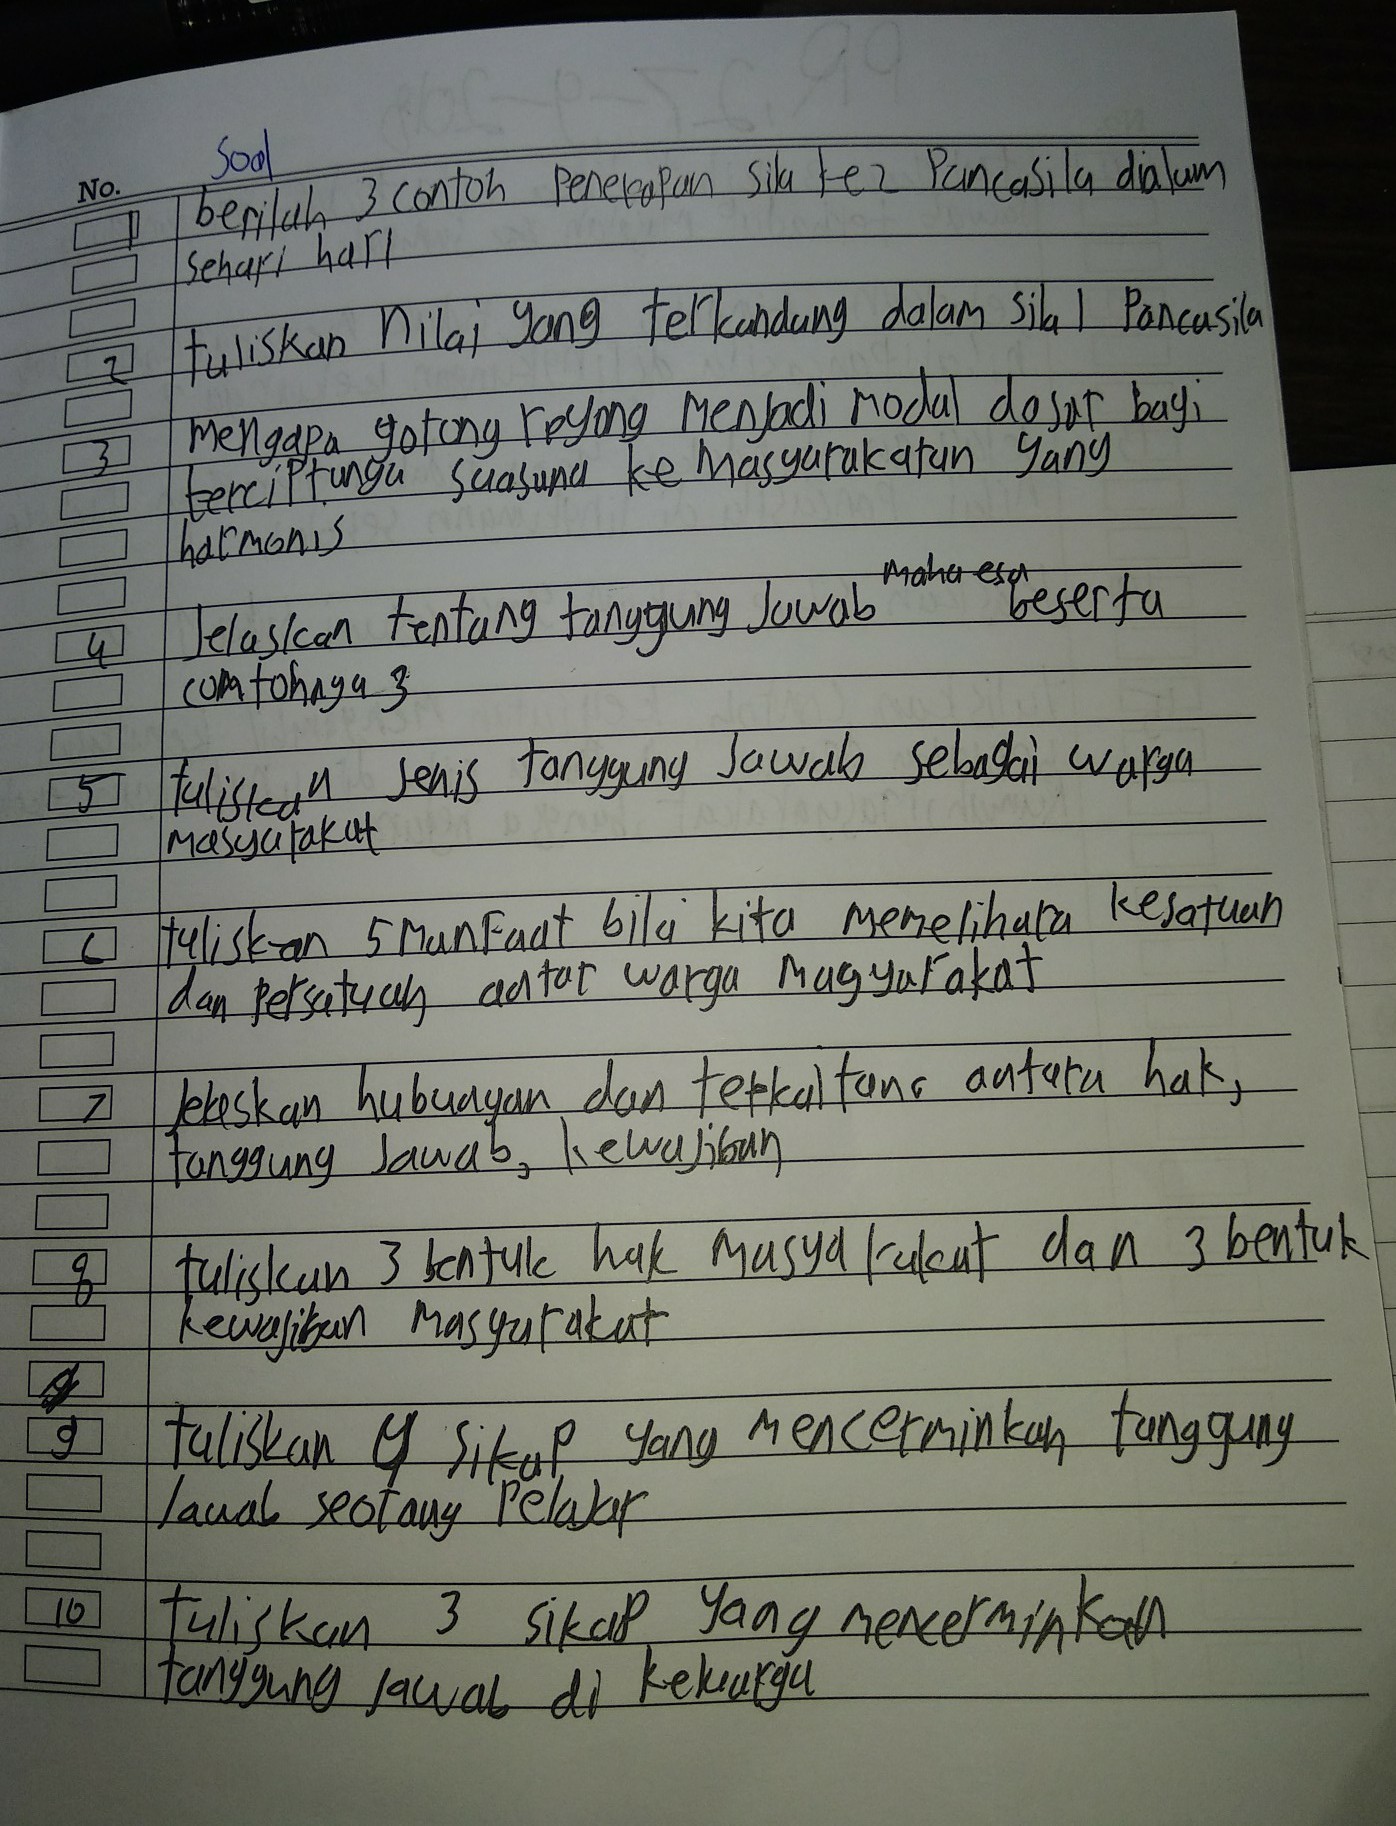 Soal
No.
1 berilah 3 contoh Penerapan sila ke 2 Pancasila dialam
sehari hari
2 tuliskan nilai yang terkandung dalam sila 1 Pancasila
3 mengapa gotong royong menjadi modal dasar bagi
terciptanya suasana kemasyarakatan yang
harmonis
Maha esa
4 Jelaskan tentang tanggung Jawab beserta
comtohnya 3
5 tuliskan Jenis tanggung Jawab sebagai warga
masyarakat
6 tuliskan 5 Manfaat bila kita memelihara kesatuan
dan Persatuan antar warga Magyarakat
7 Jelaskan hubungan dan terkaitang antara hak,
tanggung Jawab, kewajiban
8 tuliskan 3 bentuk hak masyarakat dan 3 bentuk
kewajiban masyarakat
9 tuliskan 4 sikap yang mencerminkan tanggung
Jawab seorang Pelajar
10 tuliskan 3 sikap yang mencerminkan
tanggung Jawab di keluarga